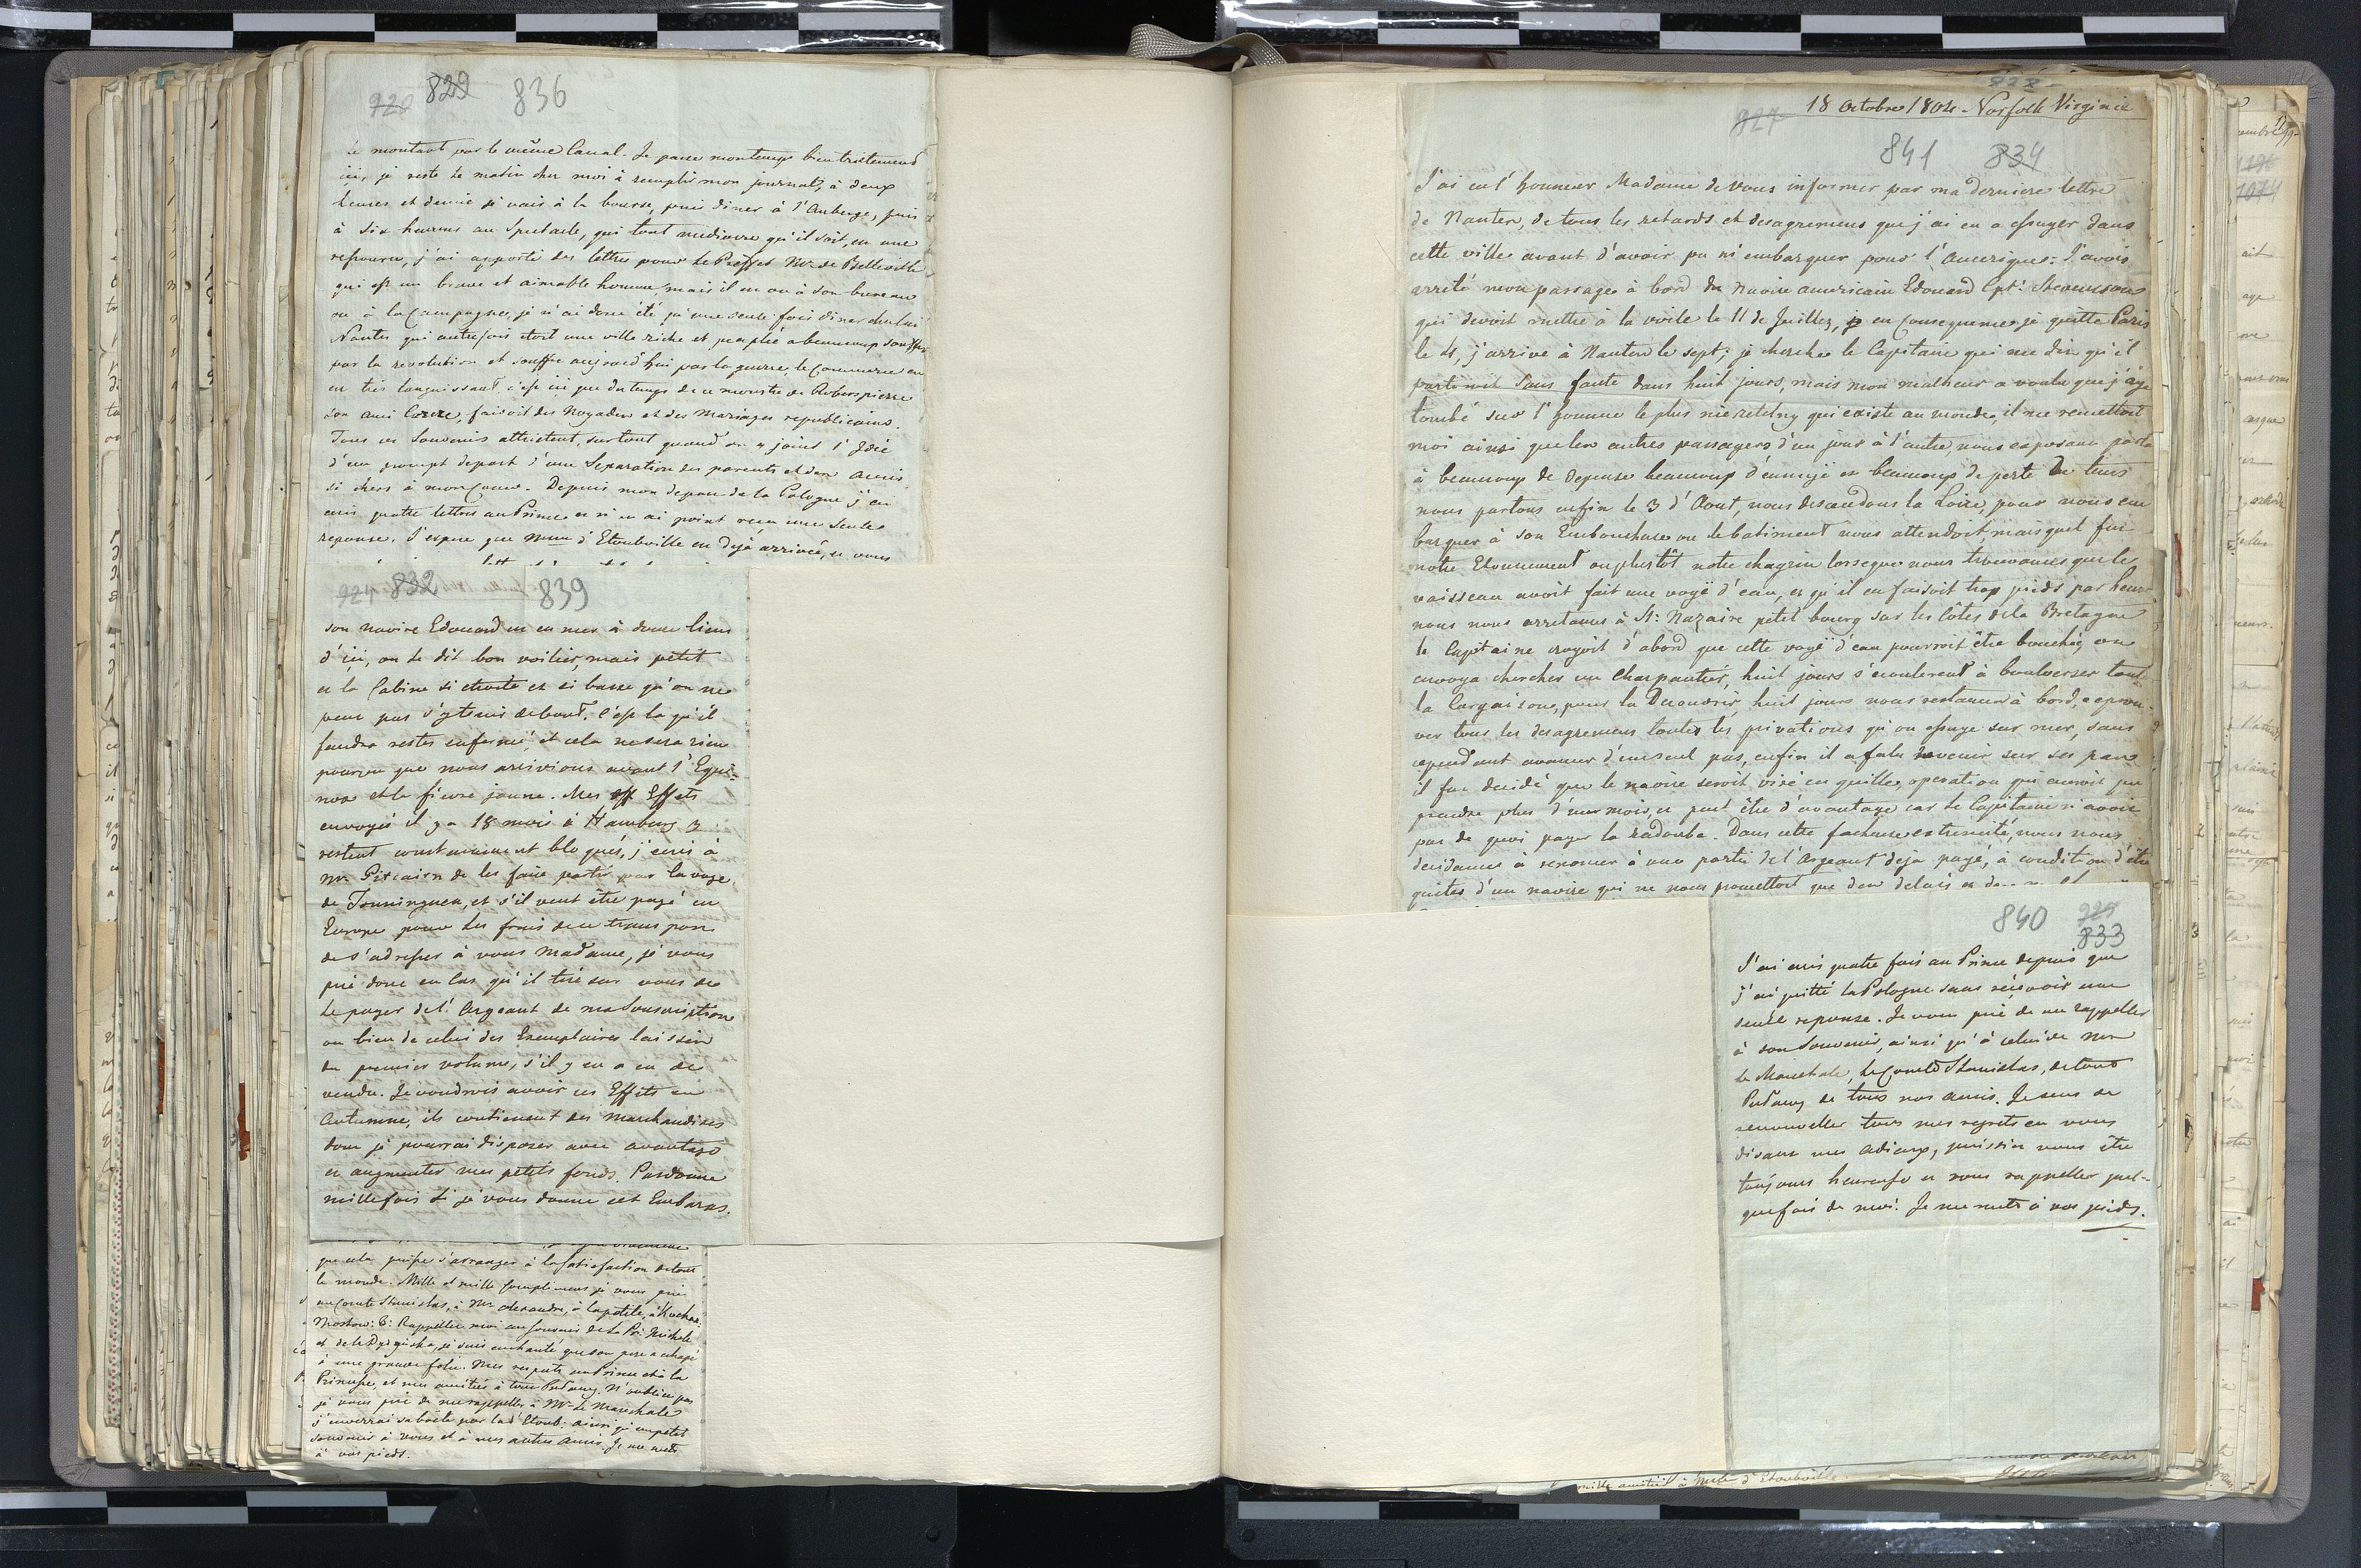 720 829 836
le montant par le même Canal. Je passe mon temps bien tristement
ici, je reste le matin chez moi à remplir mon journal, à deux
heures et demie je vais à la bourse, puis diner à l'Auberge, puis
à six heures au Spectacle, qui tout mediocre qu'il soit, est une
ressource, j'ai apporté des lettres pour le Prefet Mr. de Belleville
qui est un brave et aimable homme, mais il est ou à son bureau
ou à la Campagne, je n'ai donc été qu'une seule fois diner chez lui
Nantes qui autrefois etoit une ville riche et peuplée a beaucoup souffert
par la revolution et souffre aujourd'hui par la guerre, le Commerce en
est très languissant, c'est ici que du temps de ce monstre de Roberspierre
son ami Carere, faisoit des Noyades et des Mariages republicains.
Tous ces Souvenirs attristent, surtout quand on y joint l'Idée
d'un prompt depart d'une Separation des parents et des amis
si chers à mon Coeur. Depuis mon depart de la Pologne j'ai
ecris quatre lettres au Prince et n'en ai point reçu une seule
reponse. J'espere que Mme d'Etoubville est dejà arrivée, et vous
832 839
son navire Edouard est en mer à douze lieus
d'ici, on le dit bon voilier, mais petit
et la Cabine si etroite et si basse qu'on ne
peut pas s'y tenir debout. C'est la qu'il
faudra rester enfermé, et cela ne sera rien
pourvu que nous arrivions avant l'Equi-
noxe et la fievre jaune. Mes Effets
envoyés il y a 18 mois à Hamburg y
restent constamment bloqués, j'ecris à
Mr. Pitcairn de les faire partir par la voye
de Tonninguen, et s'il veut être payé en
Europe pour les frais de ce transport
de s'adresser à vous Madame, je vous
prie donc en Cas qu'il tire sur vous de
le payer de l'Argeant de ma Souscription
ou bien de celui des Exemplaires laissés
du premier volume, s'il y en a eu de
vendu. Je voudrois avoir ces Effets en
Automne, ils contienent des Marchandises
dont je pourrai disposer avec avantage
et augmenter mes petits fonds. Pardonne
mille fois si je vous donne cet Embaras.
que cela puisse s'arranger à la satisfaction de tout
le monde. Mille et mille Complimens je vous prie
au Comte Stanislas, à Mr Alexandre, à la petite, à Kochan:
Mostow: &: Rappellez moi au souvenir de la Pss Michele
je suis enchanté que son pere a echapé
à une grande folie. Mes respects au Prince et à la
Princesse, et mes amitiés à tout Pulawy. N'oubliez pas
je vous prie de me rappeller à Mr. le Marechale
j'enverrai sa boëte par la d'Etoub: ainsi qu'un petit
souvenir à vous et à mes autres Amis. Je me mets
à vos pieds.
18 Octobre 1804 - Norfolk Virginie
841 834
J'ai eu l'honneur Madame de vous informer par ma derniere lettre
de Nantes, de tous les retards et desagremens que j'ai eu a essuyer dans
cette ville, avant d'avoir pu m'embarquer pour l'Amerique: J'avois
arreté mon passage à bord du Navire americain Edouard Cpt: Stevenson
qui devoit mettre à la voile le 11 de Juillet, en Consequence je quitte Paris
le 4, j'arrive à Nantes le sept; je cherche le Capitaine qui me dit qu'il
partiroit sans faute dans huit jours, mais mon malheur a voulu que j'aye
tombé sur l'homme le plus qui existe au monde, il me remettoit
moi ainsi que les autres passagers d'un jour à l'autre, nous exposant par la
à beaucoup de depense beaucoup d'ennuy et beaucoup de perte de tems
nous partons enfin le 3 d'Aout, nous descendons la Loire, pour nous em
barquer à son Embouchure ou le batiment nous attendoit, mais quel fut
notre Etonnement ou plustôt notre chagrin lorseque nous trouvames que le
vaisseau avoit fait une voye d'eau, et qu'il en faisoit trop pieds par heure
nous nous arretames à St: Nazaire petit bourg sur les Côtes de la Bretagne
le Capitaine croyoit d'abord que cette voye d'eau pourroit être bouchée, on
envoya chercher un Charpentier, huit jours s'ecoulerent à boulverser toute
la Cargaison, pour la Decouvrir, huit jours nous restames à bord, a eprou-
ver tous les desagremens toutes les privations qu'on essuye sur mer, sans
cependant avancer d'un seul pas, enfin il a falu revenir sur ses pas
il fut decidé que le navire seroit viré en quille, operation qui auroit pu
prendre plus d'un mois, et peut être d'avantage car le Capitaine n'avoit
pas de quoi payer la radoube. Dans cette facheuse extremité, nous nous
decidames à renoncer à une partie de l'Argeant deja payé, à condition d'être
quites d'un navire qui ne nous promettoit que des delais et
840 833
J'ai ecris quatre fois au Prince depuis que
j'ai quitté la Pologne sans recevoir une
seule reponse. Je vous prie de me rappeller
à son Souvenir, ainsi qu'à celui de Mr
le Marechale, le Comte Stanislas, de tout
Pulawy de tous nos amis. Je sens de
renouveller tous mes regrets en vous
disant mes adieux, puissiez vous être
toujours heureuse et vous rappeller quel-
quefois de moi. Je me mets à vos pieds.
mille amitiés à Mme d'Etoubville